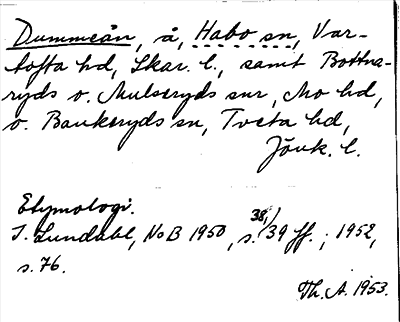 Dummeån, å, Habo sn, Var-
tofta hd, Skar. l., samt Bottna-
ryds o. Mulseryds snr, Mo hd,
o. Bankeryds sn, Tveta hd,
Jönk. l.
Etymologi.
I. Lundahl, NoB 1950, s. 38,/39 ff.; 1952,
s. 76.
Th. A. 1953.